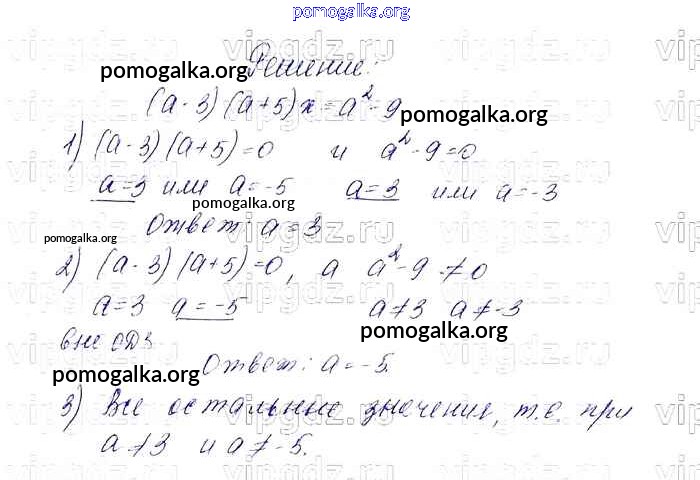 pomogalka.org
vipgdz.ru
Решение:
pomogalka.org
(а - 3) (а + 5) х = а² - 9
pomogalka.org
1) (а - 3) (а + 5) = 0 и а² - 9 = 0
а = 3 или а = -5 а = 3 или а = -3
pomogalka.org
Ответ: а = 3
pomogalka.org
2) (а - 3) (а + 5) = 0, а а² - 9 ≠ 0
а = 3 а = -5 а ≠ 3 а ≠ -3
вне ОДЗ
pomogalka.org
Ответ: а = -5.
pomogalka.org
3) Все остальные значения, т.е. при
а ≠ 3 и а ≠ -5.